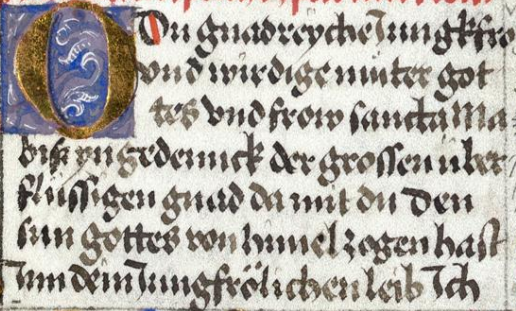 O Du gnadreyche Jungkfro
vnd wirdige muter got
tes vnd frow sancta Ma-
bis yngedennck der grossen uber
flüssigen gnad da mit du den
sun gottes von himel zogen hast
Jnn dein Jungfrölichen leib Jch